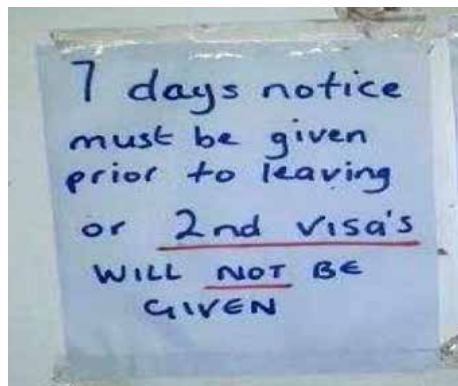 7 days notice
must be given
prior to leaving
or 2nd visa's
WILL NOT BE
GIVEN